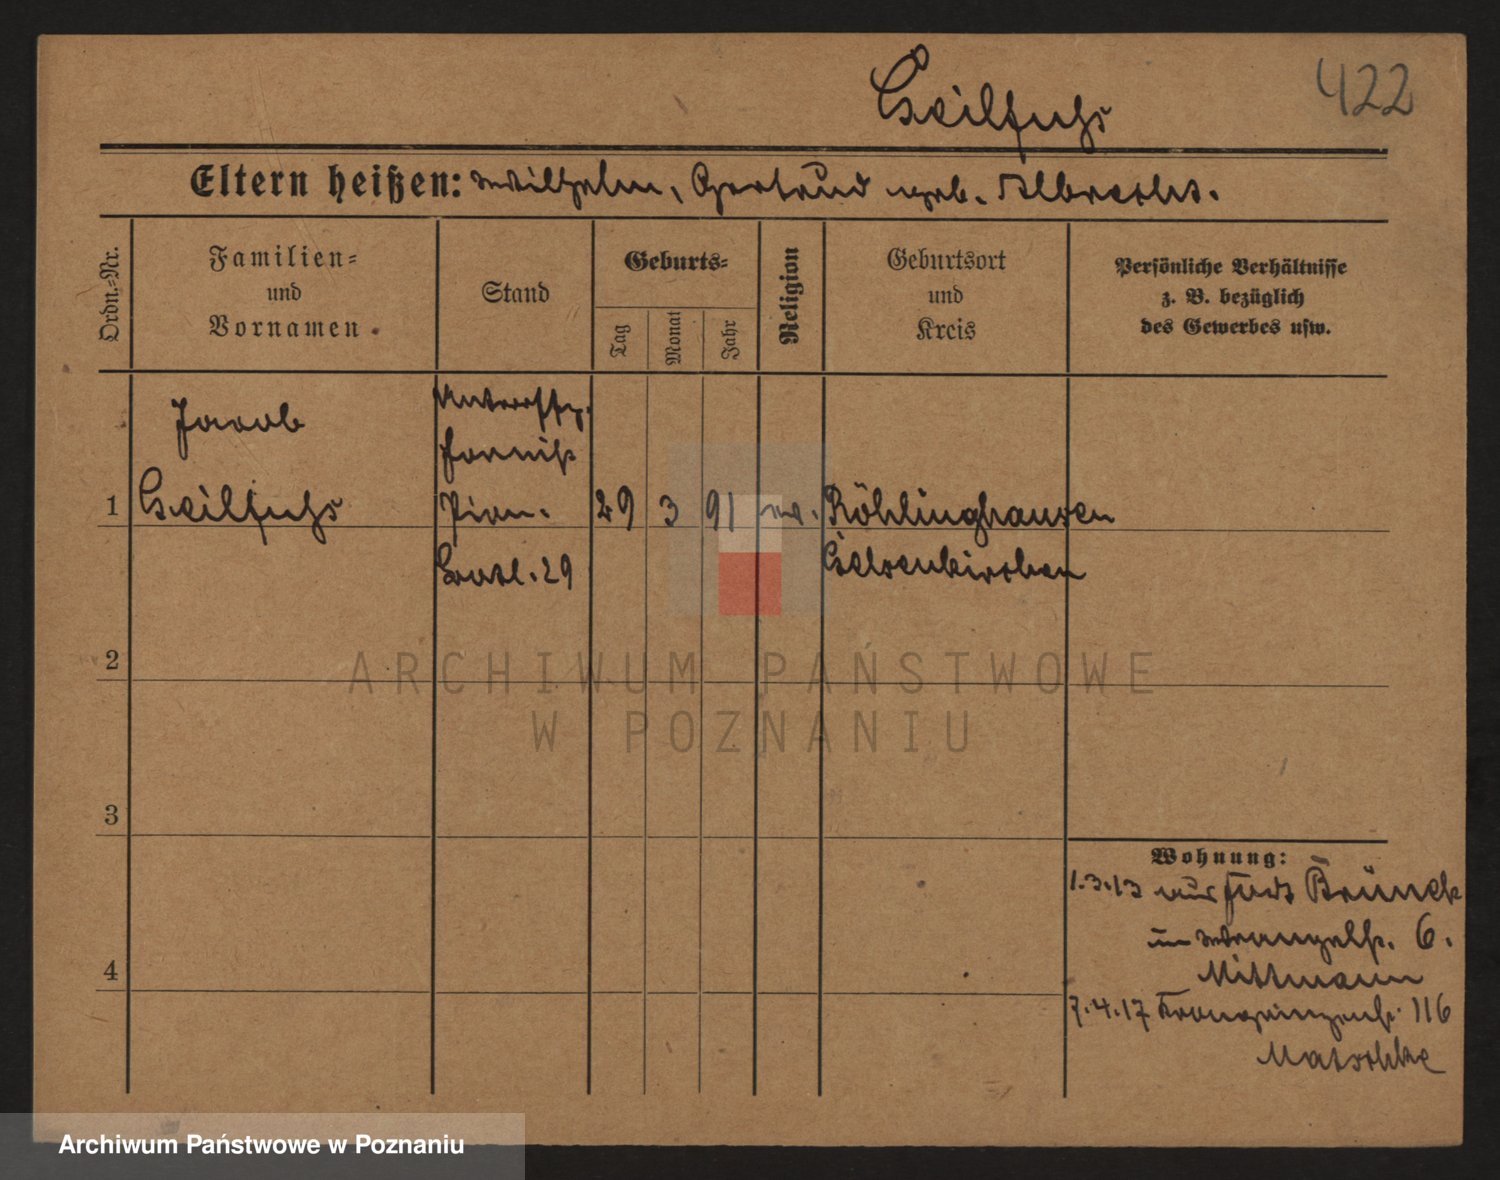 Geilfuhs
422
Eltern heißen: Wilhelm, Gertrud geb. Albrecht.
Ordn.-Nr.
Familien-
und
Vornamen
Stand
Geburts-
Tag
Monat
Jahr
Religion
Geburtsort
und
Kreis
Persönliche Verhältnisse
z. B. bezüglich
des Gewerbes usw.
Jacob
Unteroffz.
1
Geilfuhs
Pion.
29
3
91
ev.
Röhlinghausen
Batl. 29
Gelsenkirchen
2
ARCHIWUM PAŃSTWOWE
W POZNANIU
3
Wohnung:
1.3.13 Brüneck
Wrangelstr. 6.
4
Mittmann
7.4.17 Kronprinzenstr. 116
Matschke
Archiwum Państwowe w Poznaniu